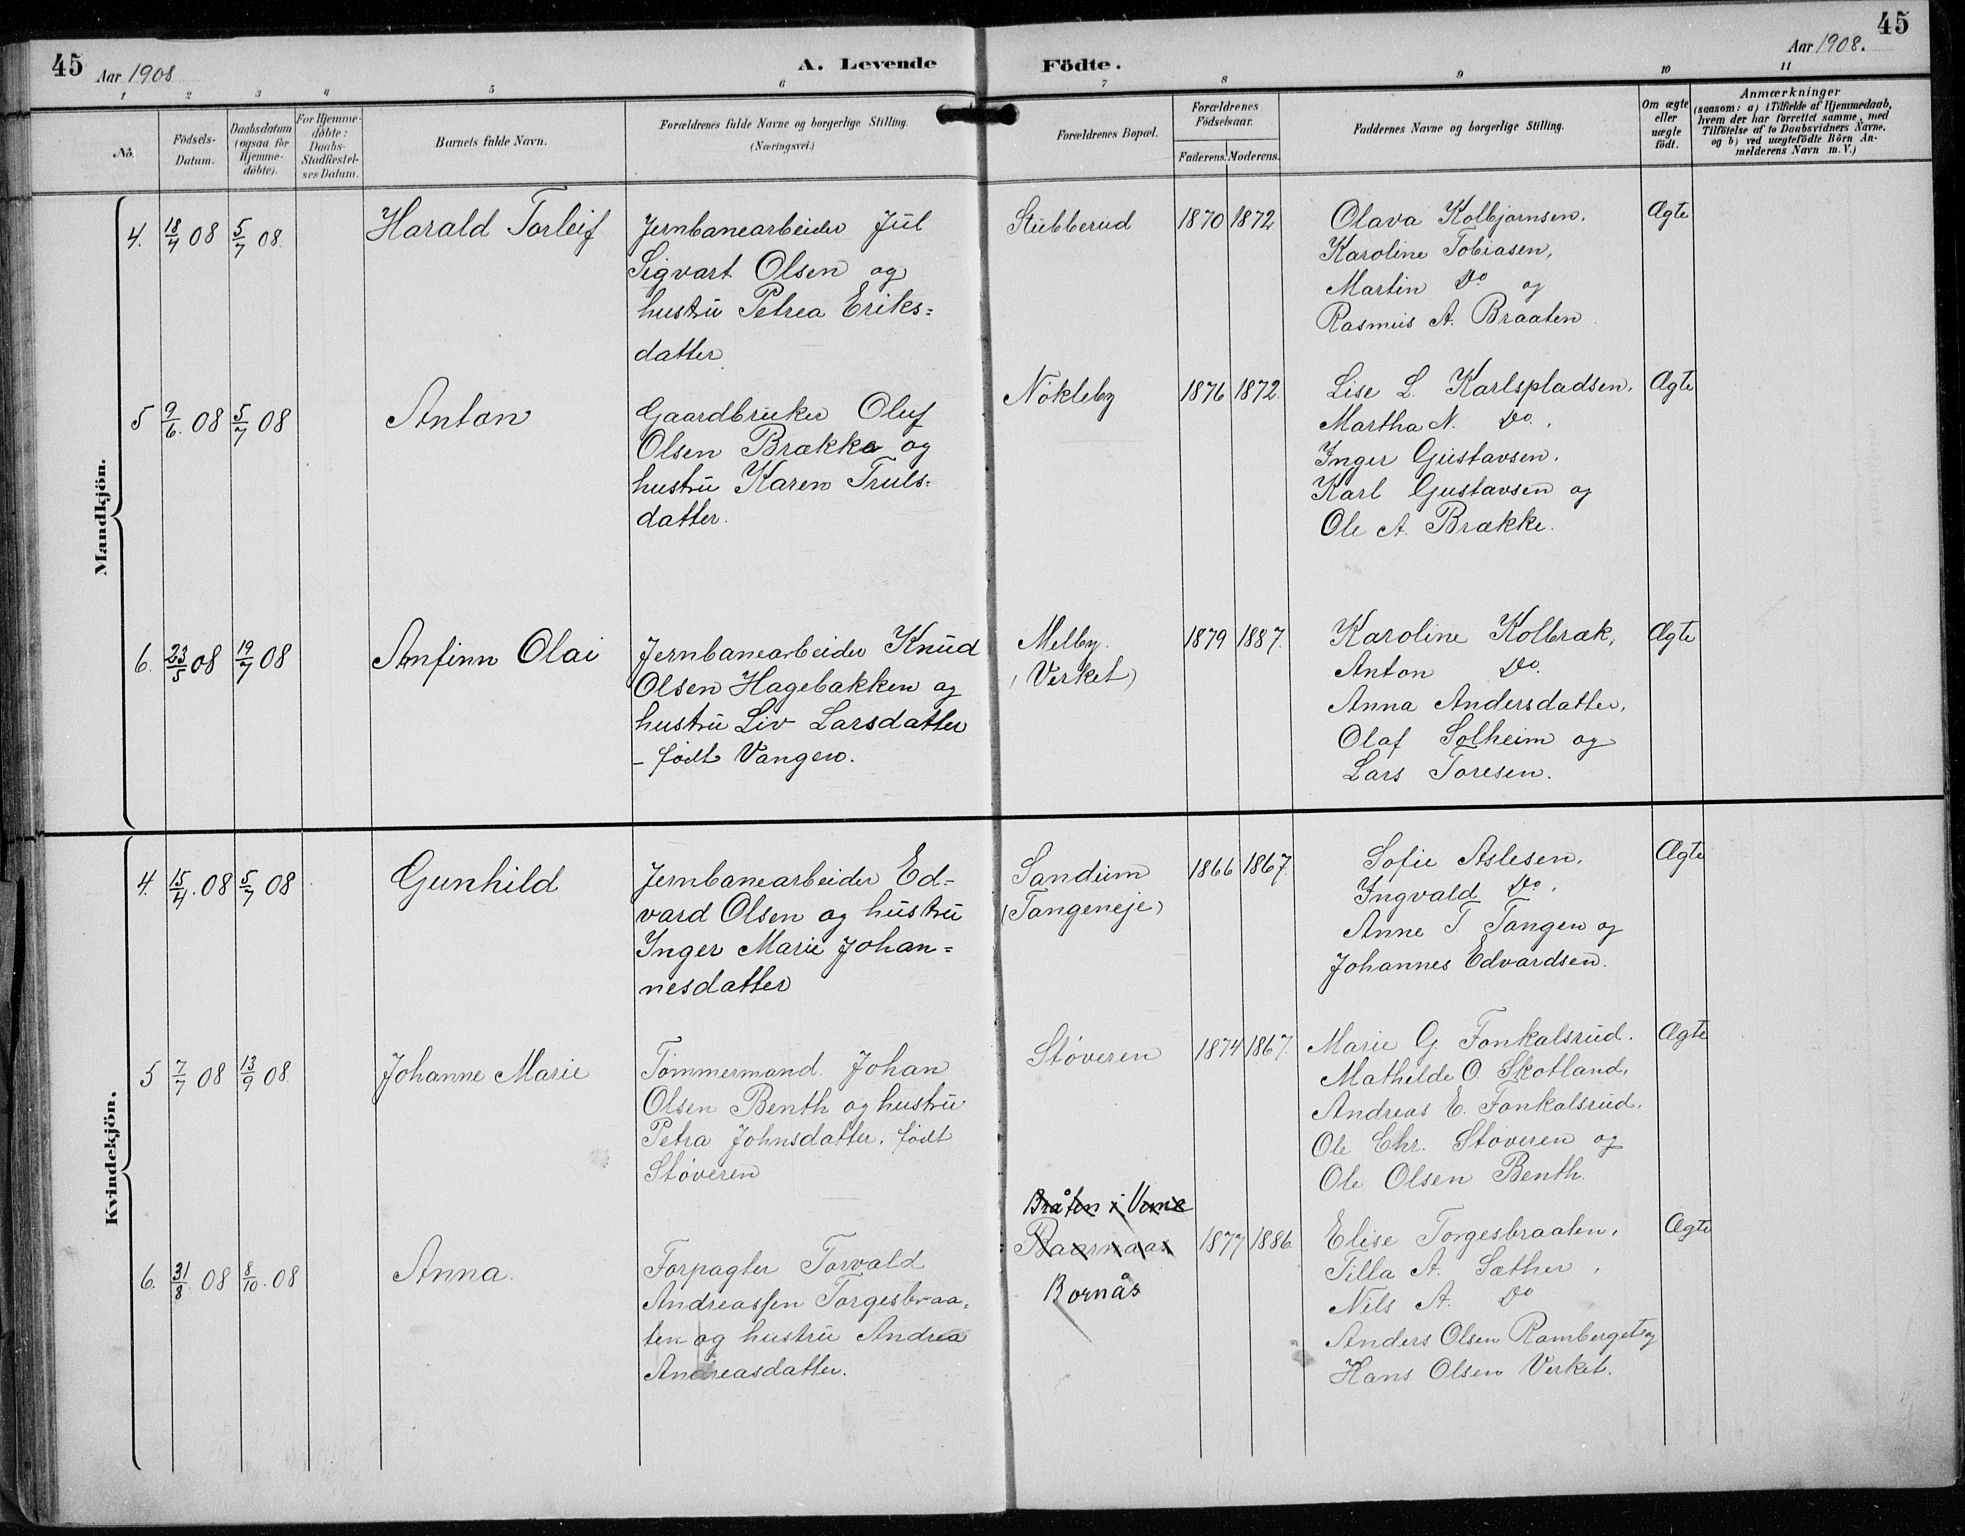 45 Aar 1908 A. Levende Födte. Aar 1908. 45
1 2 3 4 5 6 7 8 9 10 11
No.
Födsels-
Datum.
Daabsdatum
(ogsaa for
Hjemme-
döbte).
For Hjemme-
döbte:
Daabs-
Stadfæstel-
ses Datum.
Barnets fulde Navn.
Forældrenes fulde Navne og borgerlige Stilling.
(Næringsvei.)
Forældrenes Bopæl.
Forældrenes
Födselsaar.
Faderens. Moderens.
Faddernes Navne og borgerlige Stilling.
Om ægte
eller
uægte
födt.
Anmærkninger
(saasom: a) i Tilfælde af Hjemmedaab,
hvem der har forrettet samme, med
Tilföielse af to Daabsvidners Navne.
og b) ved uægtefödte Börn An-
melderens Navn m. V.)
Mandkjön.
4. 18/4 08 5/7 08. Harald Torleif
Jernbanearbeider Jul
Sigvart Olsen og
hustru Petrea Eriks=
datter
Stubberud 1870 1872
Olava Kolbjørnsen,
Karoline Tobiasen,
Martin Do og
Rasmus A. Braaten
Ægte
5 9/6. 08 5/7 08 Anton
Gaardbruker Oluf
Olsen Brække og
hustru Karen Truls=
datter.
Nökleby 1876 1872.
Lise L. Karlspladsen,
Martha N. Do.,
Inger Gustavsen.
Karl Gustavsen og
Ole A. Brække.
Ægte
6. 23/5 08 19/7 08 Anfinn Olai
Jernbanearbeider Knud
Olsen Hagebakken og
hustru Liv Larsdatter
- født Vangen.
Melby.
(Verket)
1879 1887.
Karoline Kolbræk,
Anton Do.
Anna Andersdatter,
Olaf Solheim og
Lars Toresen.
Ægte
Kvindekjön.
4. 15/4. 08 5/7 08 Gunhild
Jernbanearbeider Ed=
vard Olsen og hustru
Inger Marie Johan=
nesdatter
Sandum
(Tangeneje)
1866 1867.
Sofie Aslesen,
Ingvald Do,
Anne T. Tangen og
Johannes Edvardsen.
Ægte
5 7/7 08 13/9 08. Johanne Marie
Tømmermand Johan
Olsen Benth og hustru
Petra Johnsdatter, født
Støveren
Støveren 1874 1867.
Marie G. Fonkalsrud.
Mathilde O. Skotland,
Andreas E. Fonkalsrud,
Ole Chr. Støveren og
Ole Olsen Benth.
Ægte
6. 31/8. 08 8/10. 08 Anna.
Forpagter Torvald
Andreassen Torgesbraa=
ten og hustru Andrea
Andreasdatter.
Bråten i
Baarnaas
Bornås
1877 1886.
Elise Torgesbraaten,
Tilla A. Sæther,
Nils A. Do
Anders Olsen Ramberget og
Hans Olsen Verket.
Ægte